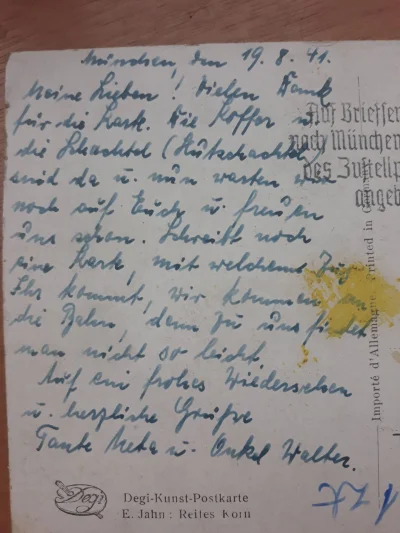 München, den 19. 8. 41.
Meine Lieben! Vielen Dank
für die Kart. Die Koffer u.
die Schachtel (Hutschachtel)
sind da u. nun warten wir
noch auf Euch u. freuen
uns schon. Schreibt noch
eine Kart, mit welchem Zug
Ihr kommt, wir kommen an
die Bahn, denn zu uns findet
man nicht so leicht.
Auf ein frohes Wiedersehen
u. herzliche Grüße
Tante Meta u. Onkel Walter.
Auf Briefsen
nach München
des Zustellp
angeb
Importé d'Allemagne Printed in
Degi
Degi-Kunst-Postkarte
E. Jahn: Reifes Korn